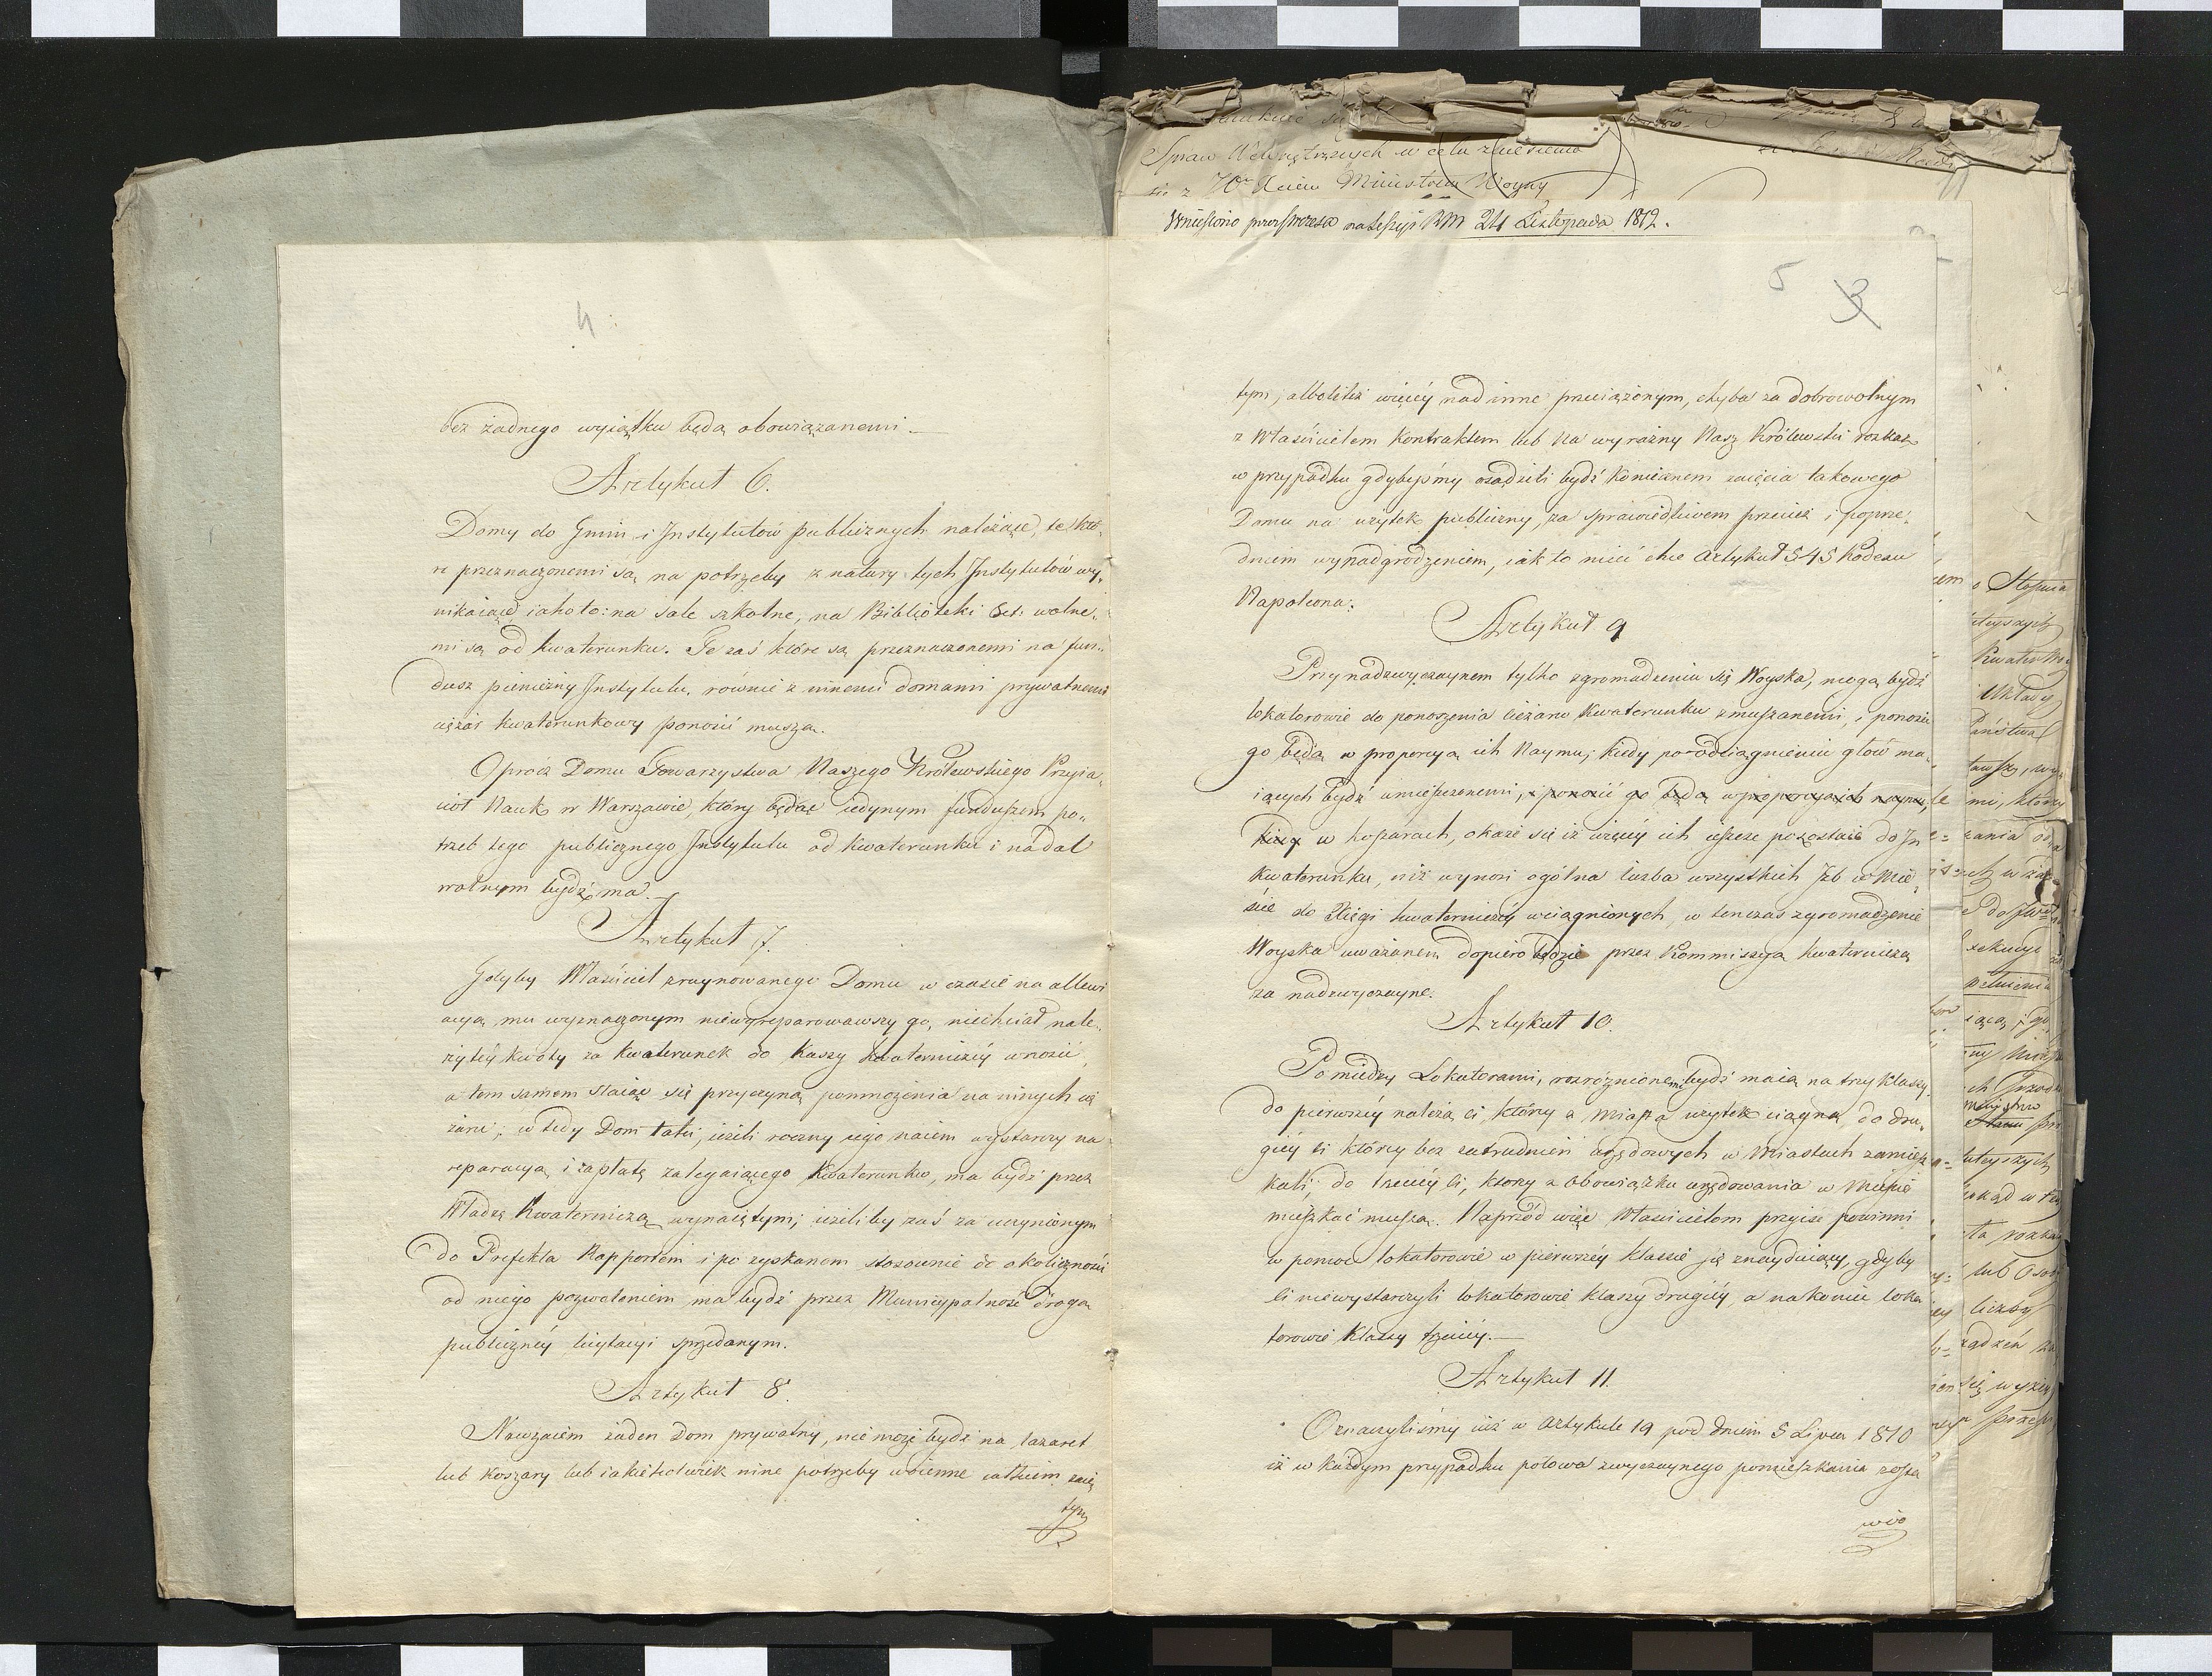 4
bez żadnego wyiątku będą obowiązanemi.—
Artykuł 6.
Domy do Gmin i Instytutów publicznych należące, te któ„
re przeznaczonemi są na potrzeby z natury tych Instytutów wy„
nikaiące, iako to: na sale szkolne, na Biblioteki &ct: wolne„
mi są od kwaterunku. Te zaś które są przeznaczonemi na fun„
dusz pieniężny Instytutu, równie z innemi domami prywatnemi
ciężar kwaterunkowy ponosić muszą.
Oprócz Domu Towarzystwa Naszego Królewskiego Przyia„
ciół Nauk w Warszawie, który będąc iedynym funduszem po„
trzeb tego publicznego Instytutu od kwaterunku i nadal
wolnym bydź ma.
Artykuł 7.
Gdyby Właściciel zruynowanego Domu w czasie na allewi
acyą mu wyznaczonym niewyreparowawszy go, niechciał nale„
żytéy kwoty za kwaterunek do Kassy kwaterniczéy wnosić,
a tem samem staiąc się przyczyną pomnożenia na innych cię
żaru; wtedy Dom taki, ieżeli roczny iego naiem wystarczy na
reparacyą i zapłatę zalegaiącego kwaterunku, ma bydź przez
Władzę Kwaterniczą wynaiętym; ieżeliby zaś za uczynionym
do Prefekta Rapportem i po zyskanem stosownie do okoliczności
od niego pozwoleniem ma bydź przez Municypalność drogą
publicznéy licytacyi sprzedanym.
Artykuł 8.
Nawzaiem żaden Dom prywatny, nie może bydź na lazaret
lub koszary lub iakiekolwiek inne potrzeby woienne całkiem zaię
tym
Spraw Wewnętrznych w celu zniesienia
się z Ministrem Woyny
Wniesiono przez Prezesa na Sessyi RM 24 Listopada 1812.
5 3
tym, albo też więcéy nad inne przeciążonym, chyba za dobrowolnym
z Właścicielem kontraktem lub na wyraźny Nasz Królewski rozkaz
w przypadku gdybyśmy osądzili bydź koniecznem zaięcia takowego
Domu na użytek publiczny, za sprawiedliwem przecież i poprze„
dniem wynadgrodzeniem, iak to mieć chce Artykuł 545 Kodexu
Napoleona.
Artykuł 9
Przy nadzwyczaynem tylko zgromadzeniu się Woyska, mogą bydź
lokatorowie do ponoszenia ciężaru kwaterunku zmuszanemi, i ponosić
go będą w proporcyą ich Naymu; kiedy po odciągnieniu głów ma„
iących bydź umieszczonemi, i ponosić go będą w proporcyą ich naymu,
kiedy w koszarach, okaże się iż więcéy ich ieszcze pozostaie do In
kwaterunku, niż wynosi ogólna liczba wszystkich Izb w Mie„
ście do Xięgi kwaterniczéy wciągnionych, w tenczas zgromadzenie
Woyska uważanem dopiero będzie przez Kommissyą kwaterniczą
za nadzwyczayne.
Artykuł 10.
Pomiędzy Lokatorami, rozróżnionemi bydź maią na trzy klassy.
do pierwszéy należą ci, którzy z Miasta użytek ciągną, do dru„
giéy ci którzy bez zatrudnień urzędowych w Miastach zamiesz
kali; do trzeciéy ci, którzy z obowiązku urzędowania w Mieście
mieszkać muszą. Naprzód więc Właścicielom przyiść powinni
w pomoc lokatorowie w pierwszéy klassie się znayduiący, gdyby
ci niewystarczyli lokatorowie klassy drugiéy, a nakoniec loka
torowie klassy trzeciéy.—
Artykuł 11.
Oznaczyliśmy iuż w Artykule 19 pod dniem 5 Lipca 1810
iż w każdym przypadku połowa zwyczaynego pomieszkania zosta
wio